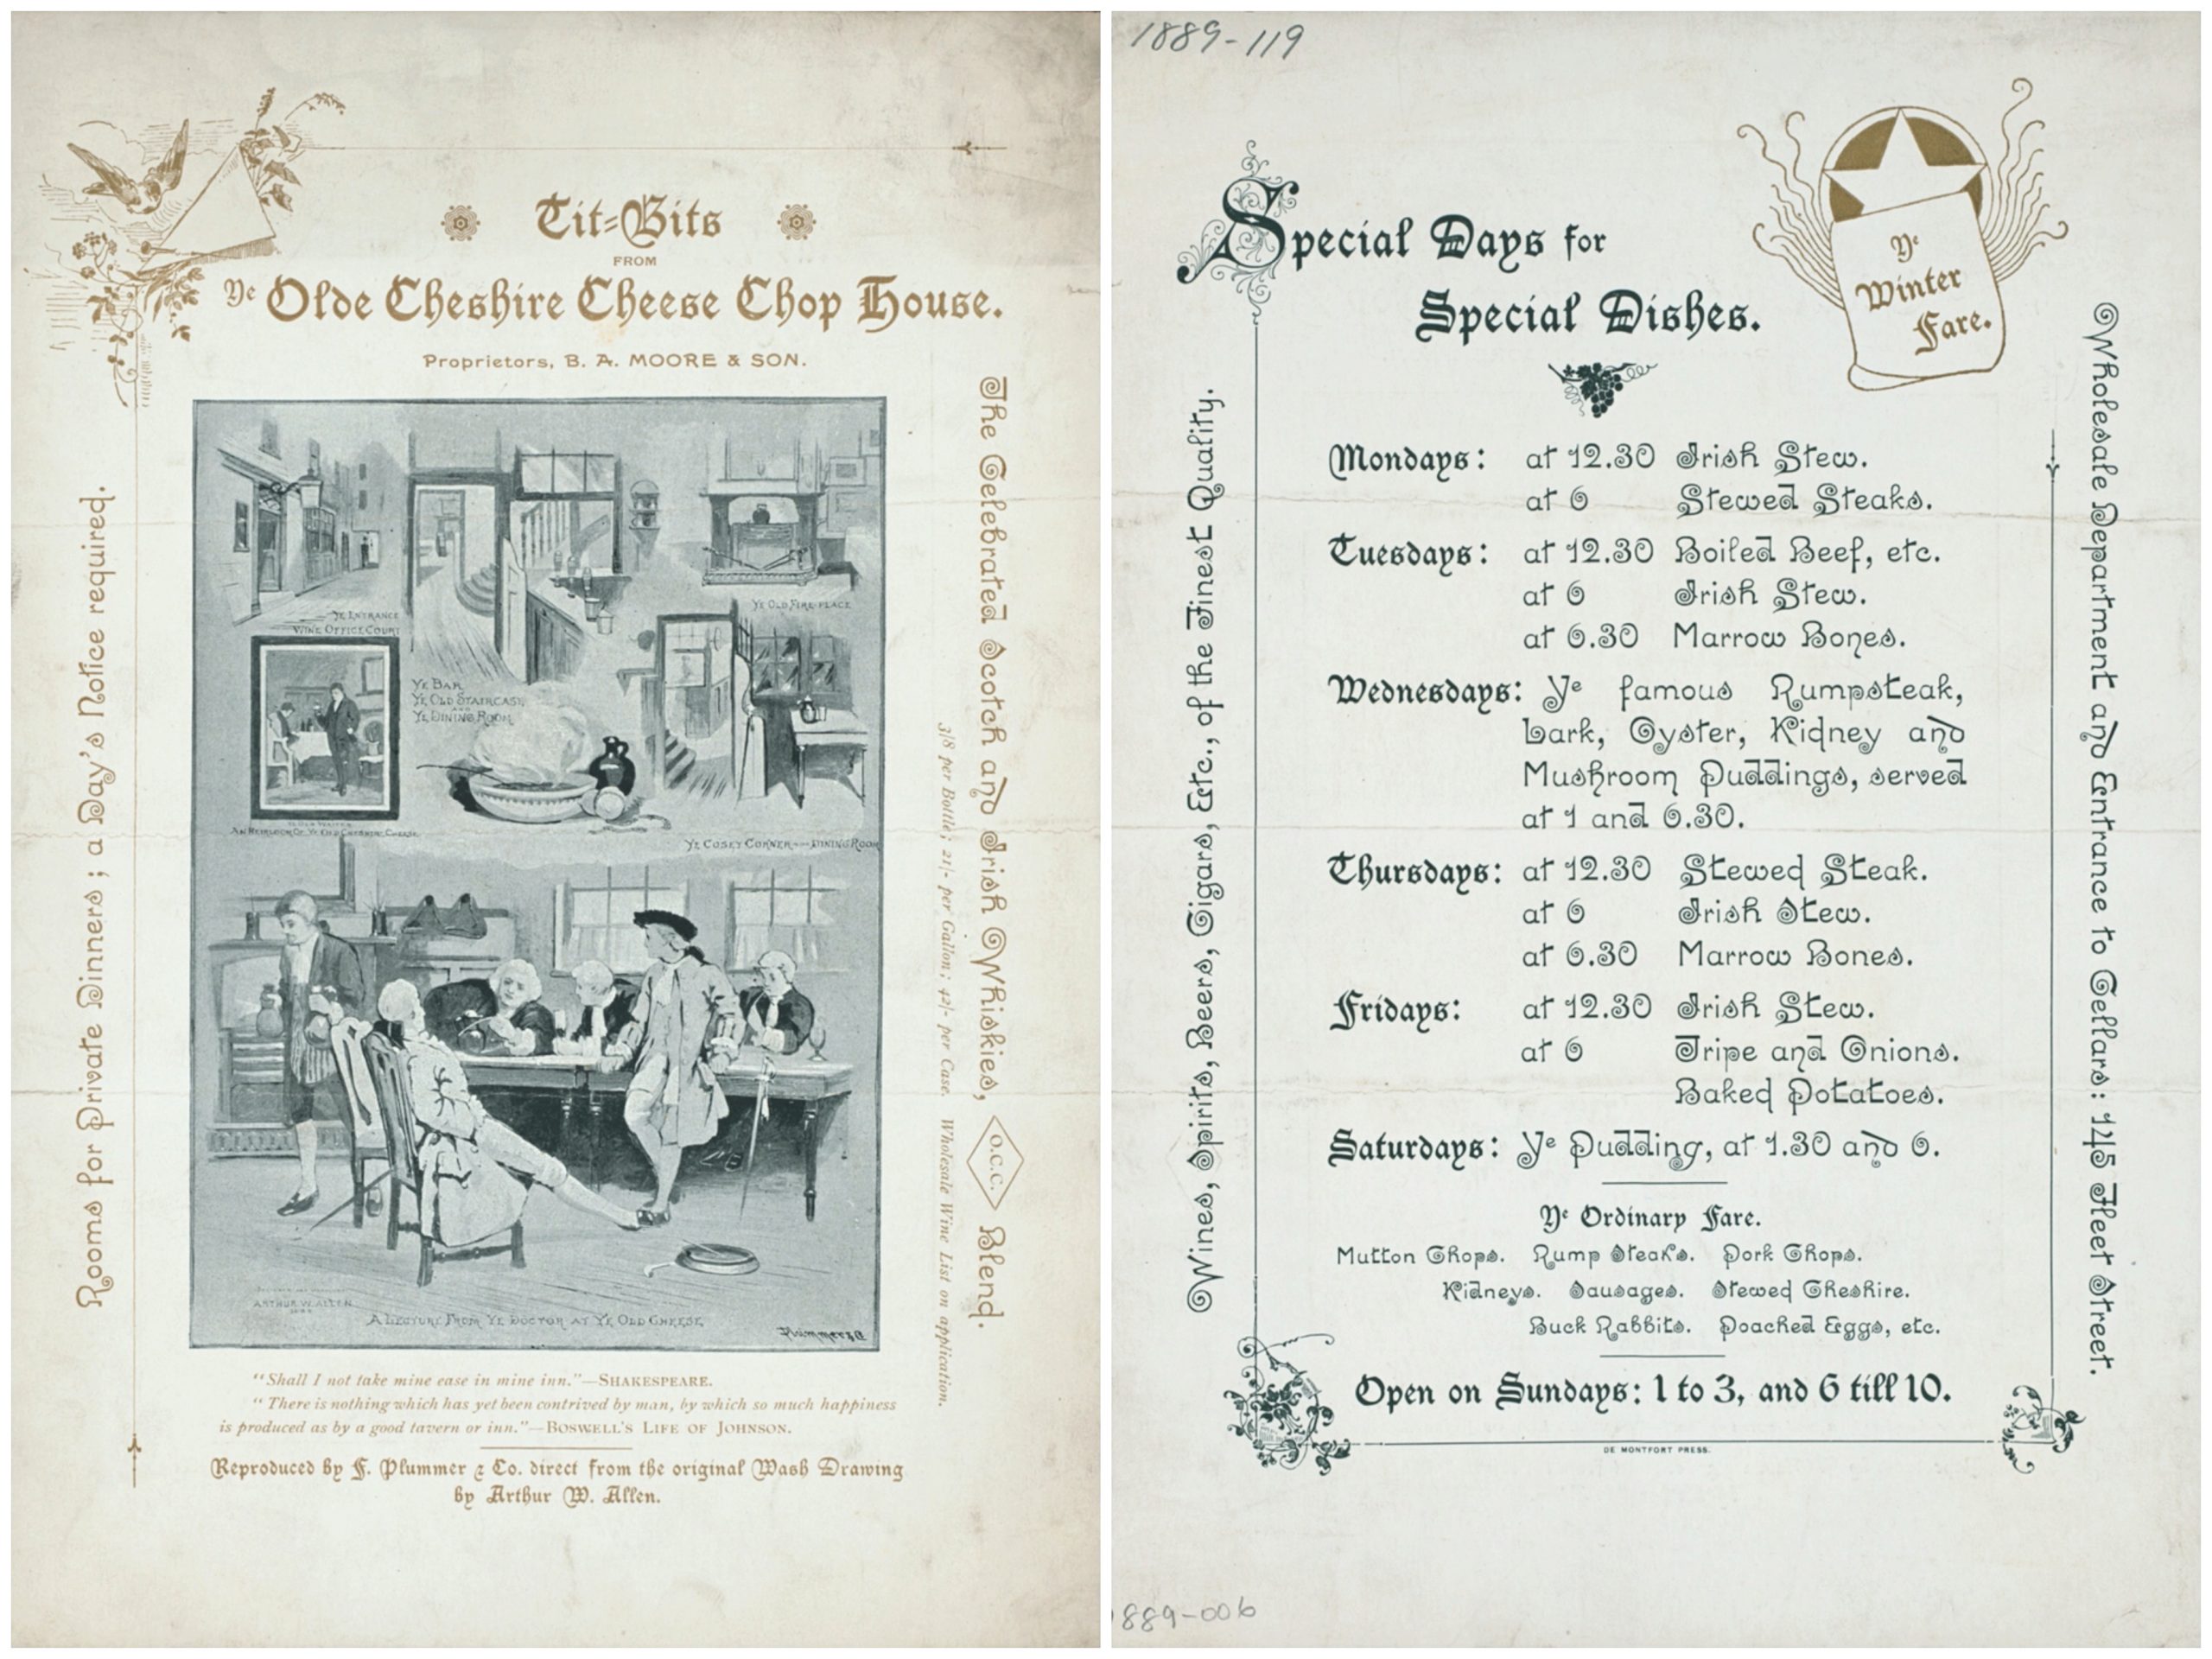 Tit-Bits
FROM
Ye Olde Cheshire Cheese Chop House.
Proprietors, B. A. MOORE & SON.
Rooms for Private Dinners; a Day's Notice required.
YE ENTRANCE
WINE OFFICE COURT
YE OLD FIRE PLACE
YE BAR
YE OLD STAIRCASE
AND
YE DINING ROOM
AN HEIRLOOM OF YE OLD CHESHIRE CHEESE
YE COSEY CORNER — DINING ROOM
ARTHUR W. ALLEN
A LECTURE FROM YE DOCTOR AT YE OLD CHEESE
Plummer & Co
The Celebrated Scotch and Irish Whiskies, O.C.C. Blend.
3/8 per Bottle; 21/- per Gallon; 42/- per Case. Wholesale Wine List on application.
"Shall I not take mine ease in mine inn."—SHAKESPEARE.
"There is nothing which has yet been contrived by man, by which so much happiness
is produced as by a good tavern or inn."—BOSWELL'S LIFE OF JOHNSON.
Reproduced by F. Plummer & Co. direct from the original Wash Drawing
by Arthur W. Allen.
1889-119
Special Days for
Special Dishes.
Ye
Winter
Fare.
Wines, Spirits, Beers, Cigars, Etc., of the Finest Quality.
Mondays: at 12.30 Irish Stew.
at 6 Stewed Steaks.
Tuesdays: at 12.30 Boiled Beef, etc.
at 6 Irish Stew.
at 6.30 Marrow Bones.
Wednesdays: Ye famous Rumpsteak,
Lark, Oyster, Kidney and
Mushroom Puddings, served
at 1 and 6.30.
Thursdays: at 12.30 Stewed Steak.
at 6 Irish Stew.
at 6.30 Marrow Bones.
Fridays: at 12.30 Irish Stew.
at 6 Tripe and Onions.
Baked Potatoes.
Saturdays: Ye Pudding, at 1.30 and 6.
Ye Ordinary Fare.
Mutton Chops. Rump Steaks. Pork Chops.
Kidneys. Sausages. Stewed Cheshire.
Buck Rabbits. Poached Eggs, etc.
Open on Sundays: 1 to 3, and 6 till 10.
DE MONTFORT PRESS.
Wholesale Department and Entrance to Cellars: 145 Fleet Street.
889-006